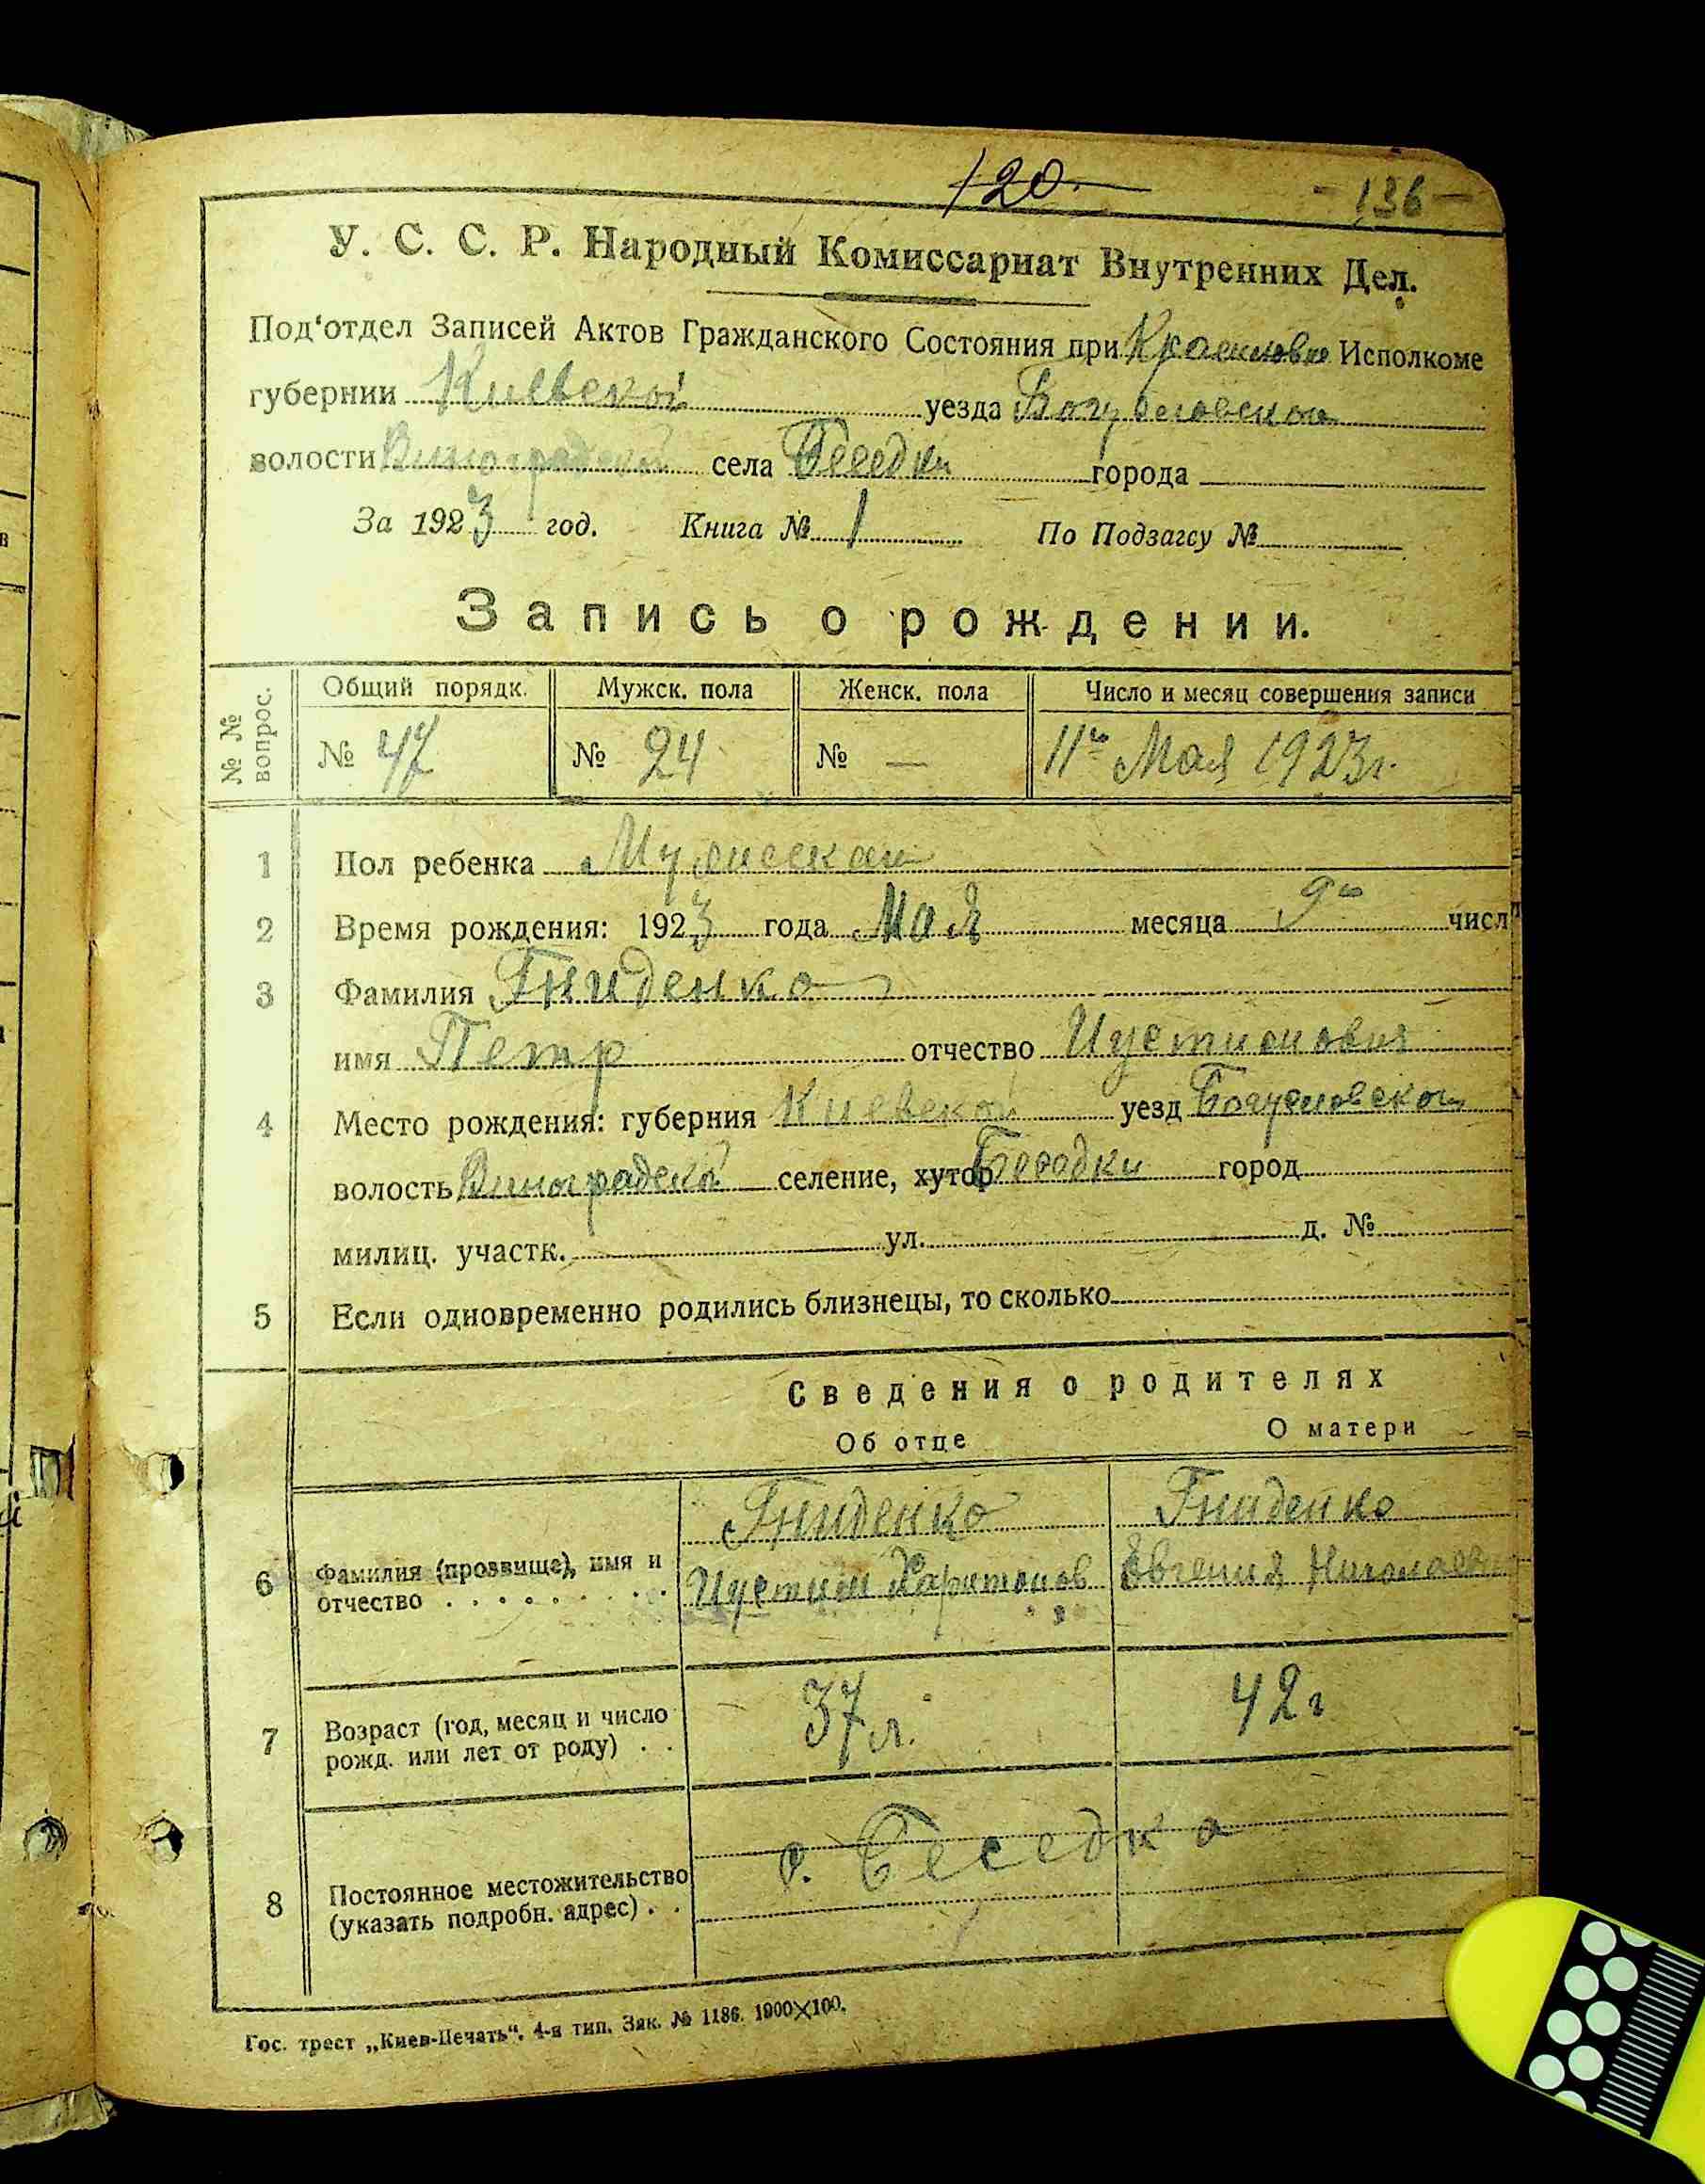 120.
- 136 -
У. С. С. Р. Народный Комиссариат Внутренних Дел.
Под‘отдел Записей Актов Гражданского Состояния при Исполкоме
губернии Киевской уезда Богуславского
волости Виноградской села Беседки города
За 1923 год. Книга № 1 По Подзагсу №
Запись о рождении.
№ № вопрос. Общий порядк. Мужск. пола Женск. пола Число и месяц совершения записи
№ 47 № 24 № — 11го Мая 1923 г.
1 Пол ребенка Мужеский
2 Время рождения: 1923 года Мая месяца 9го числ
3 Фамилия Гниденко
имя Петр отчество Иустинович
4 Место рождения: губерния Киевской уезд Богуславской
волость Виноградской селение, хутор Беседки город
милиц. участк. ул. д. №
5 Если одновременно родились близнецы, то сколько
Сведения о родителях
Об отце О матери
Гниденко Гниденко
6 Фамилия (прозвище), имя и отчество . . . . . . . . . Иустин Харитонов Евгения Николаевн
7 Возраст (год, месяц и число рожд. или лет от роду) . . 37 л. 42 г
8 Постоянное местожительство (указать подробн. адрес) . . с. Беседка
Гос. трест „Киев-Печать“. 4-я тип. Зак. № 1186. 1000×100.